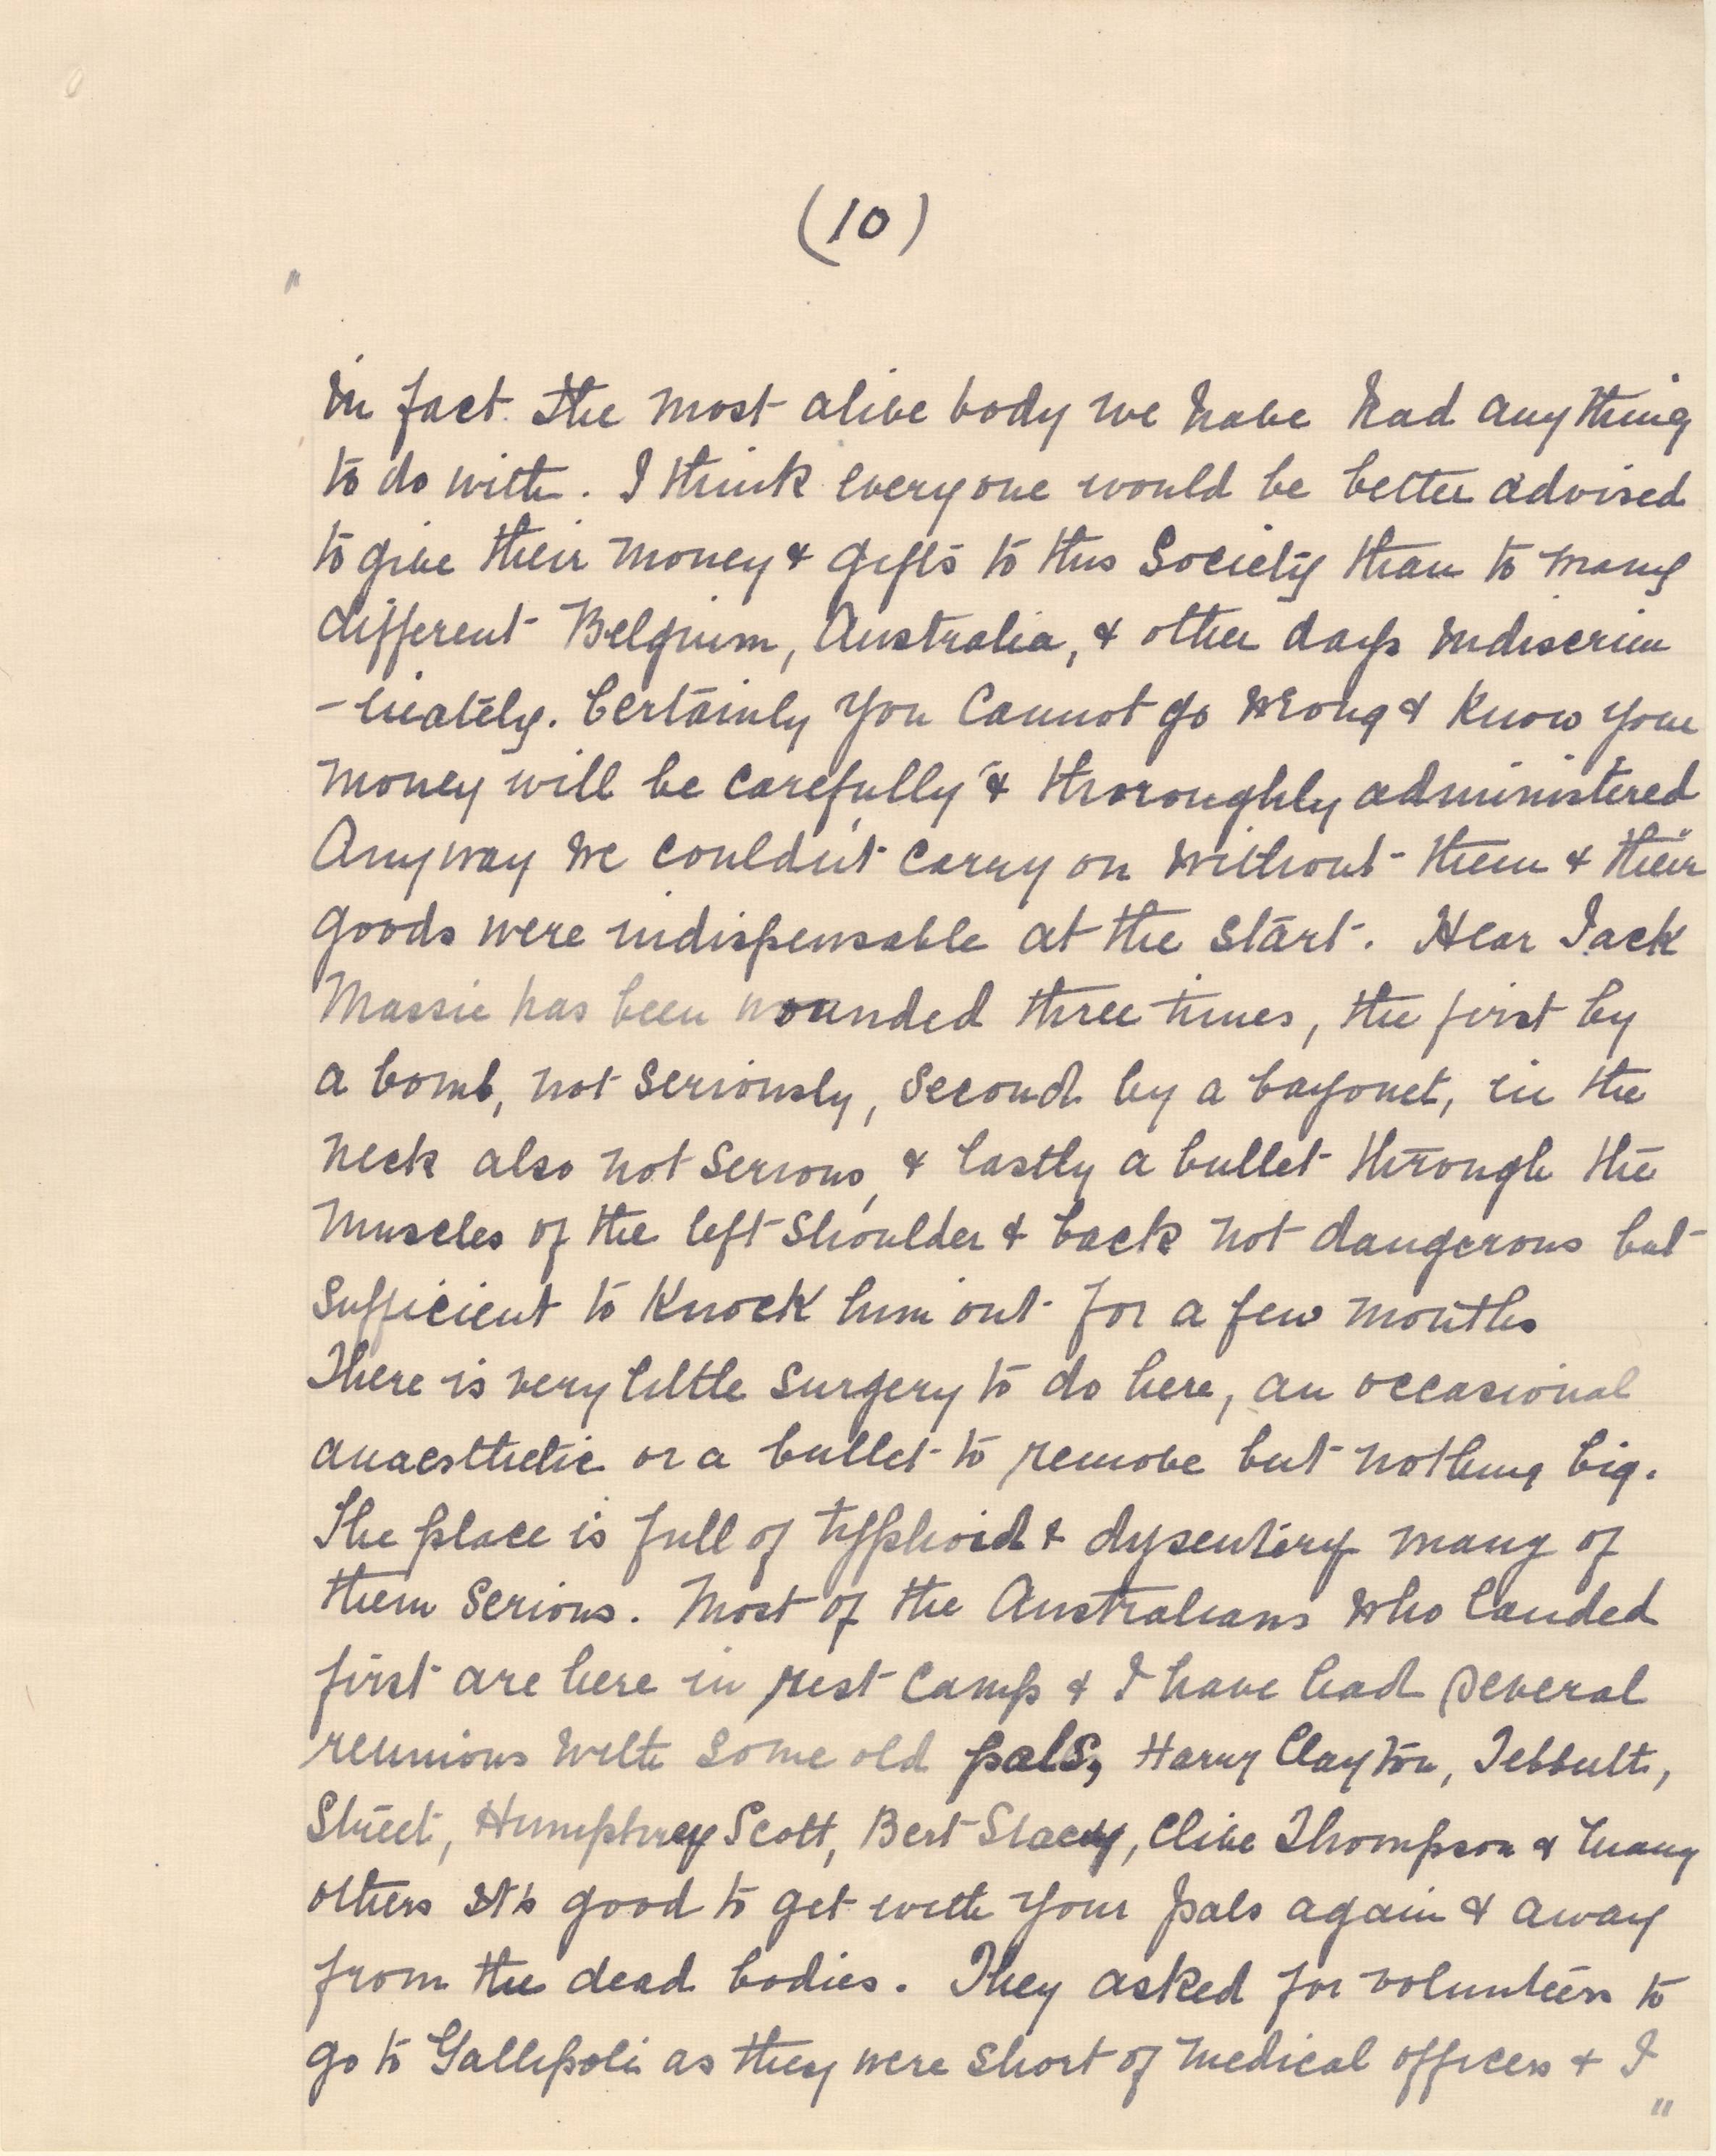 (10)
in fact the most alive body we have had anything
to do with. I think everyone would be better advised
to give their money & gifts to this Society than to many
different Belgium, Australia, & other days indiscrim
-inately. Certainly you cannot go wrong & know your
money will be carefully & thoroughly administered
Anyway we couldn't carry on without them & their
goods were indispensable at the start. Hear Jack
Massie has been wounded three times, the first by
a bomb, not seriously, second by a bayonet, in the
neck also not serious, & lastly a bullet through the
muscles of the left shoulder & back not dangerous but
sufficient to knock him out for a few months
There is very little surgery to do here, an occasional
anaesthetic or a bullet to remove but nothing big.
The place is full of typhoid & dysentery many of
them serious. Most of the Australians who landed
first are here in rest camp & I have had several
reunions with some old pals, Harry Clayton, Tebbutt,
Street, Humphrey Scott, Bert Stacey, Clive Thompson & many
others It's good to get with your pals again & away
from the dead bodies. They asked for volunteers to
go to Gallipoli as they were short of medical officers & I
"